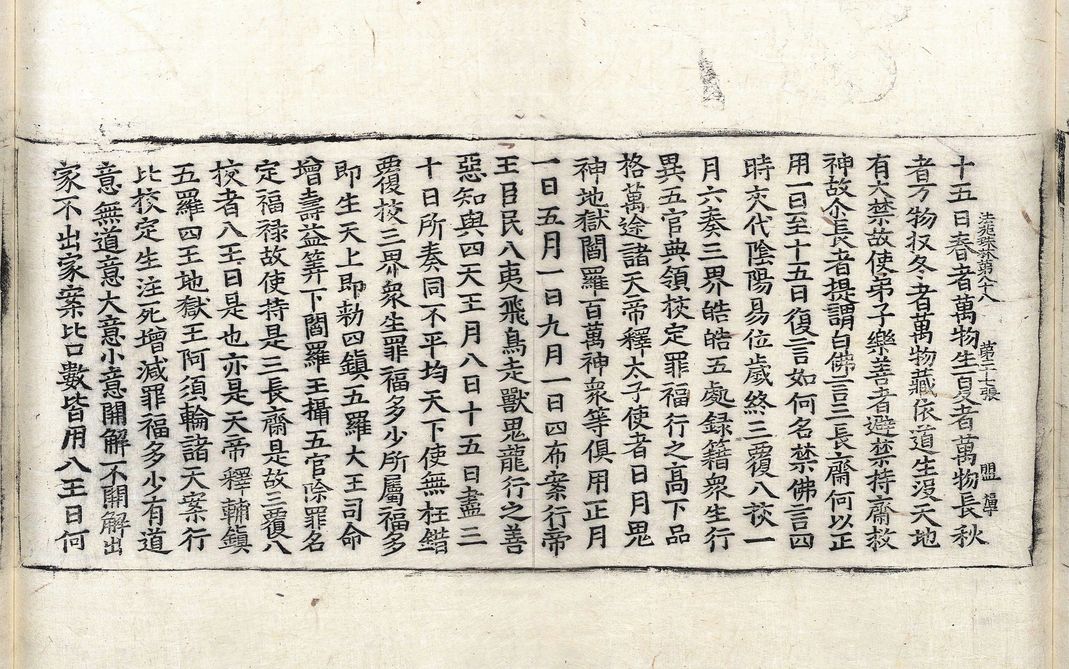 十五日春者萬物生夏者萬物長秋
法苑珠林第八十八 第二十七張 盟 福學
者万物収冬者萬物藏依道生沒天地
有大禁故使弟子樂善者避禁持齋救
神故尒長者提謂白佛言三長齋何以正
用一日至十五日復言如何名禁佛言四
時交代陰陽易位歲終三覆八校一
月六奏三界皓皓五處録籍衆生行
異五官典領校定罪福行之髙下品
格萬途諸天帝釋太子使者日月鬼
神地獄閻羅百萬神衆等俱用正月
一日五月一日九月一日四布案行帝
王臣民八夷飛鳥走獸鬼龍行之善
惡知與四天王月八日十五日盡三
十日所奏同不平均天下使無枉錯
覆校三界衆生罪福多少所屬福多
即生天上即勑四鎭五羅大王司命
增壽益筭下閻羅王攝五官除罪名
定福禄故使持是三長齋是故三覆八
校者八王日是也亦是天帝釋輔鎭
五羅四王地獄王阿須輪諸天案行
比校定生注死增減罪福多少有道
意無道意大意小意開解不開解出
家不出家案比口數皆用八王日何